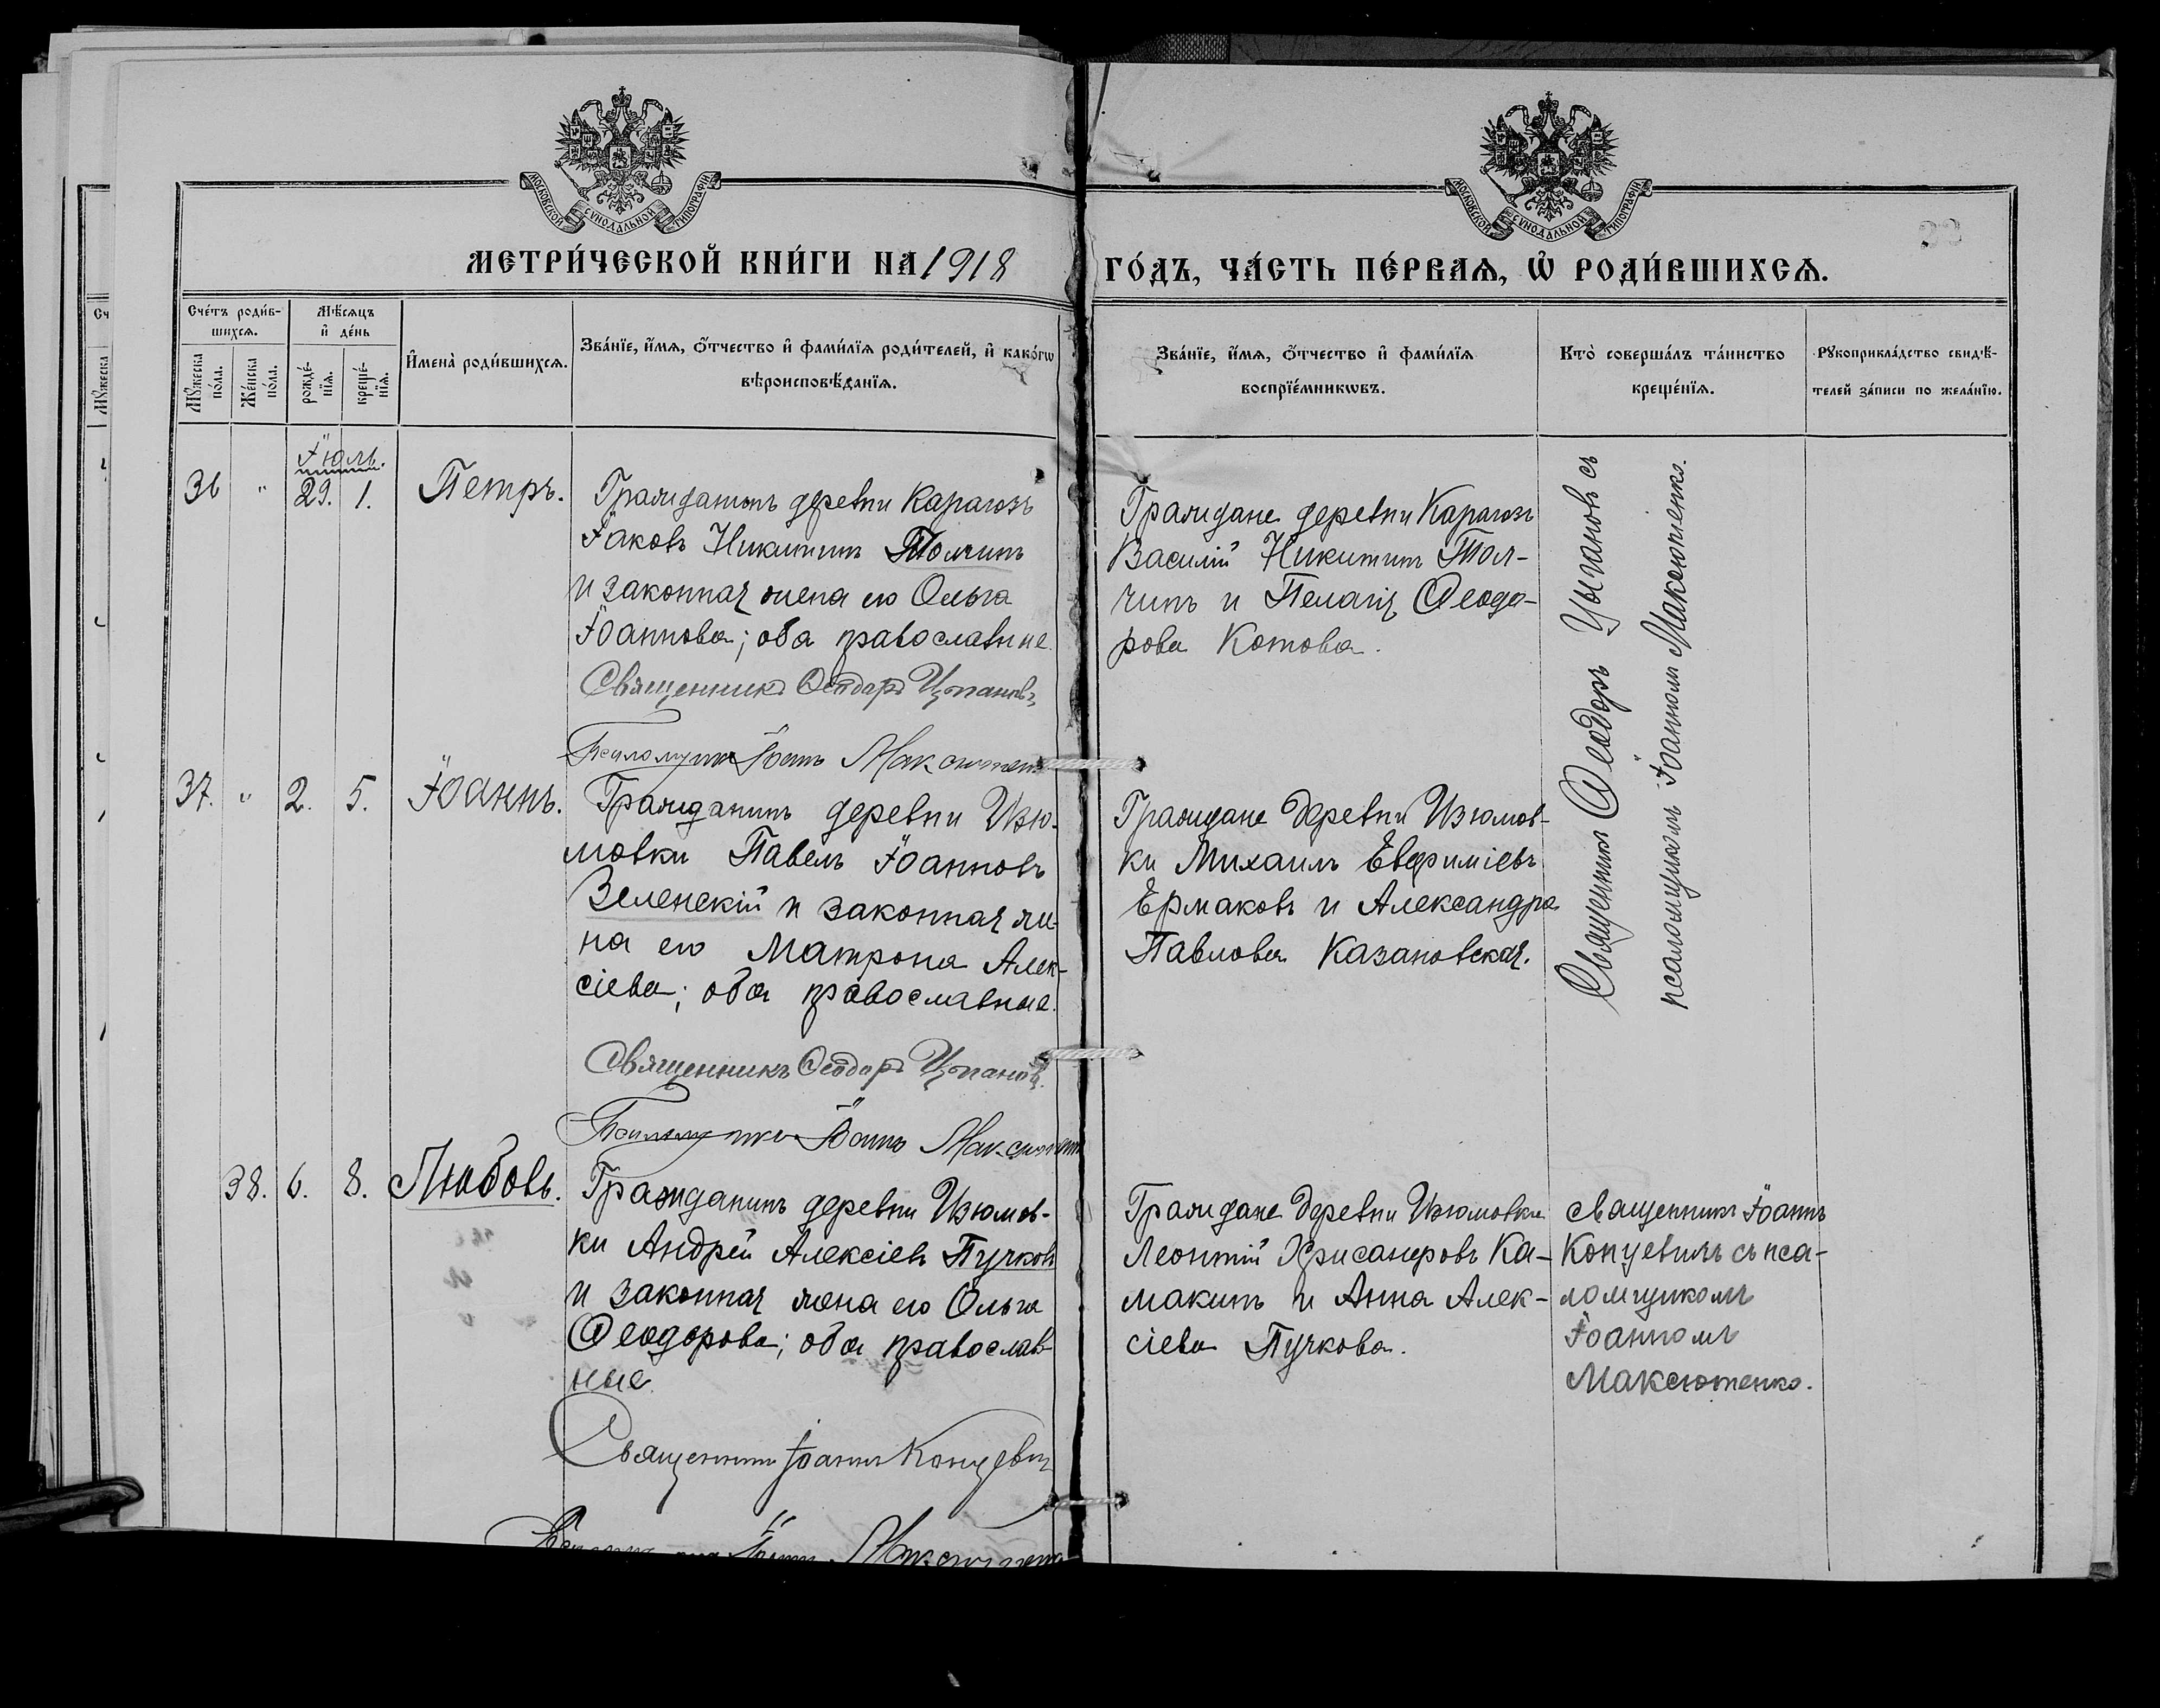 МОСКОВСКОЙ СѴНОДАЛЬНОЙ ТИПОГРАФІИ
МОСКОВСКОЙ СѴНОДАЛЬНОЙ ТИПОГРАФІИ
МЕТРИ́ЧЕСКОЙ КНИ́ГИ НА 1918
ГО́ДЪ, ЧА́СТЬ ПЕ́РВАѦ, Ѡ҆ РОДИ́ВШИХСѦ.
Сче́тъ роди́в-
шихсѧ.
Мꙋ́жеска
по́ла.
Же́нска
по́ла.
Мѣ́сѧцъ
и҆ де́нь
рожде́-
нїѧ.
креще́-
нїѧ.
И҆мена̀ роди́вшихсѧ.
Зва́нїе, и҆́мѧ, ѻ҆́тчество и҆ фами́лїѧ роди́телей, и҆ како́гѡ
вѣроисповѣ́данїѧ.
Зва́нїе, и҆́мѧ, ѻ҆́тчество и҆ фами́лїѧ
воспрїе́мникѡвъ.
Кто̀ соверша́лъ та́инство
креще́нїѧ.
Рꙋкоприкла́дство свидѣ́-
телей за́писи по жела́нїю.
Іюль.
36 " 29. 1. Петръ.
Гражданинъ деревни Карагозъ
Іаковъ Никитинъ Толчинъ
и законная жена его Ольга
Іоаннова; оба православные.
Священникъ Ѳеодоръ Цыгановъ
Псаломщикъ Іоаннъ Максютенко
Граждане деревни Карагозъ
Василій Никитинъ Тол-
чинъ и Пелагія Ѳеодо-
рова Котова.
Священникъ Ѳеодоръ Цыгановъ съ
псаломщикомъ Іоанномъ Максютенко.
37. " 2. 5. Іоаннъ.
Гражданинъ деревни Изю-
мовки Павелъ Іоанновъ
Зеленскій и законная же-
на его Матрона Алек-
сіева; оба православные.
Священникъ Ѳеодоръ Цыгановъ.
Псаломщикъ Іоаннъ Максютенко
Граждане деревни Изюмов-
ки Михаилъ Евфиміевъ
Ермаковъ и Александра
Павлова Казановская.
38. 6. 8. Любовь.
Гражданинъ деревни Изюмов-
ки Андрей Алексіевъ Пучковъ
и законная жена его Ольга
Ѳеодорова; оба православ-
ные.
Священникъ Іоаннъ Концевич
Псаломщикъ Іоаннъ Максютенко
Граждане деревни Изюмовки
Леонтій Хрисанфовъ Ка-
макинъ и Анна Алек-
сіева Пучкова.
Священникъ Іоаннъ
Концевичъ съ пса-
ломщикомъ
Іоанномъ
Максютенко.